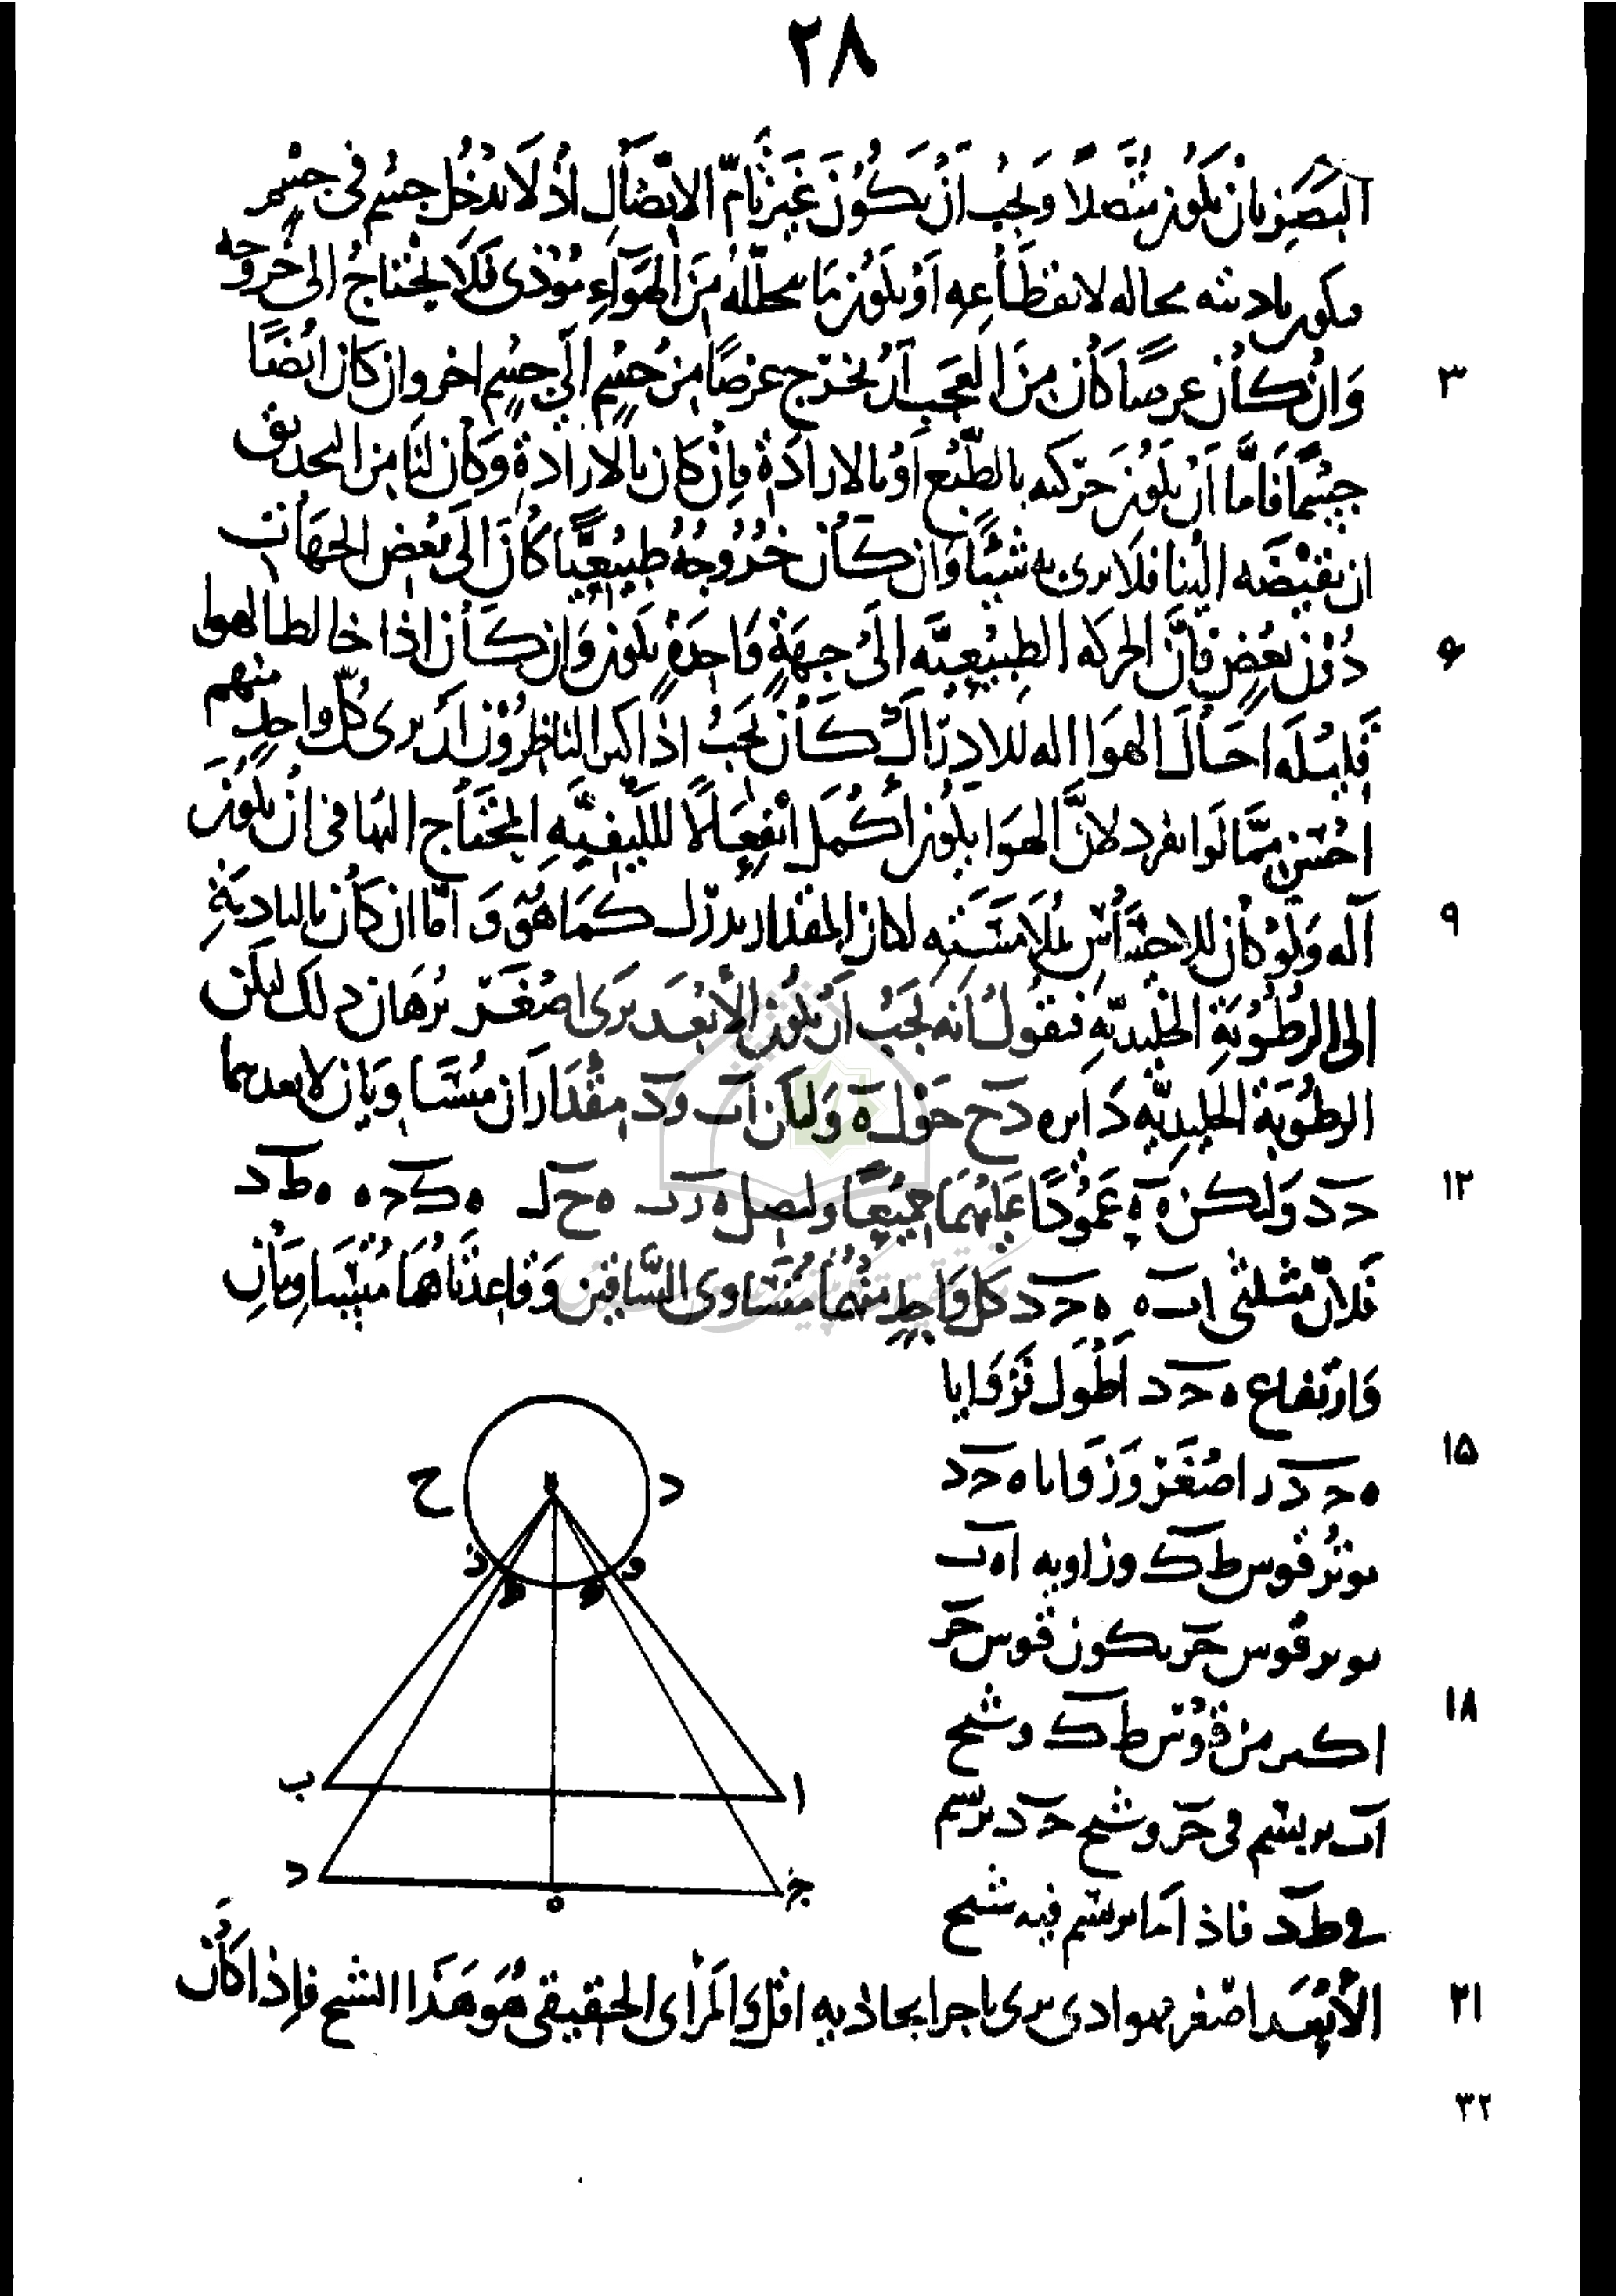 ٢٨
البصر بان يكون متصلا ويجب ان يكون غير تام الاتصال اذ لا يدخل جسم فى جسم
فيكون تاديته محاله لانقطاعه او يكون ما يحلله من الهواء مؤذى فلا يحتاج الى خروجه
٣ وان كان عرضا كان من العجب ان يخرج عرضا من جسم الى جسم اخر وان كان ايضا
جسما فاما ان يكون حركته بالطبع او بالارادة فان كان بالارادة وكان لنا من التحديق
ان نقبضه الينا فلا يرى به شيئا وان كان خروجه طبيعيا كان الى بعض الجهات
۶ دون بعض فان الحركه الطبيعيه الى جهة واحدة يكون وان كان اذا خالط الهوا
قليله احال الهوا اله للادراك كان يجب اذا كثر الناظرون ان يرى كل واحد منهم
احسن مما لو انفرد لان الهوا يكون اكمل انفعالا للكيفيه المحتاج اليها فى ان يكون
٩ آله ولو كان للاحساس بملامسته لكان المقدار يدرك كما هو واما ان كان بالتادية
الى الرطوبة الجليديه فنقول انه يجب ان يكون الابعد يرى اصغر برهان ذلك ليكن
الرطوبة الجليديه دايره دح حول ه وليكن اب ود مقداران متساويان لابعدهما
١٢ حد وليكن ه ه عمودا عليهما جميعا ولنصل ه ح ل ه ك ح ه ه ط د
فلان مثلثى اب ه ه ح د كل واحد منهما متساوى الساقين وقاعدتاهما متساويان
وارتفاع ه ح د اطول فزوايا
١۵ ه ح د اصغر وزوايا ه ح د
يوتر قوس ط ك وزاويه ا ه ب
يوتر قوس حر يكون قوس حر
١٨ اكبر من قوس ط ك وشبح
اب يرتسم فى حر وشبح ح د يرتسم
فى ط د فاذا ما يرتسم فيه شبح
٢١ الابعد اصغر فهو اذى يرى باجزا يحاذيه اقل والمراى الحقيقى هو هذا الشبح فاذا كان
ح
د
ه
ز
و
ط
ب
ا
د
ج
ه
٣٢